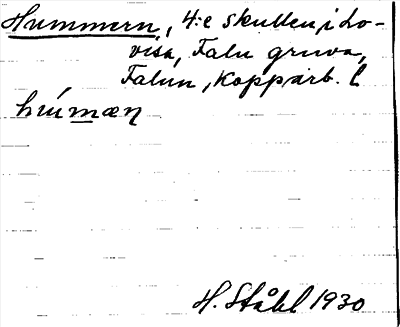 Hummern, 4:e skulten i Lo-
visa, Falu gruva,
Falun, Kopparb. l
húmæn
H. Ståhl 1930